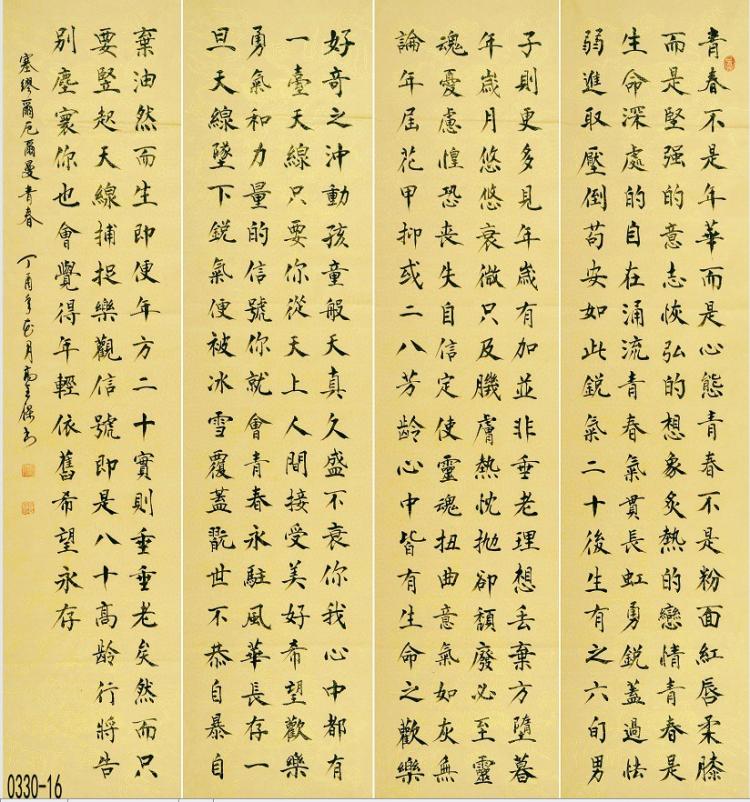 青春不是年華而是心態青春不是粉面紅唇柔膝
而是堅强的意志恢弘的想象炙熱的戀情青春是
生命深處的自在涌流青春氣貫長虹勇鋭蓋過怯
弱進取壓倒苟安如此鋭氣二十後生有之六旬男
子則更多見年歲有加並非垂老理想丢棄方墮暮
年歲月悠悠衰微只及膚熱忱抛卻頹廢必至靈
魂憂慮惶恐喪失自信定使靈魂扭曲意氣如灰無
論年屆花甲抑或二八芳齡心中皆有生命之歡樂
好奇之沖動孩童般天真久盛不衰你我心中都有
一臺天線只要你從天上人間接受美好希望歡樂
勇氣和力量的信號你就會青春永駐風華長存一
旦天線墜下鋭氣便被冰雪覆蓋翫世不恭自暴自
棄油然而生即便年方二十實則垂垂老矣然而只
要竪起天線捕捉樂觀信號即是八十高齡行將告
別塵寰你也會覺得年輕依舊希望永存
塞繆爾厄爾曼青春 丁酉年
0330-16